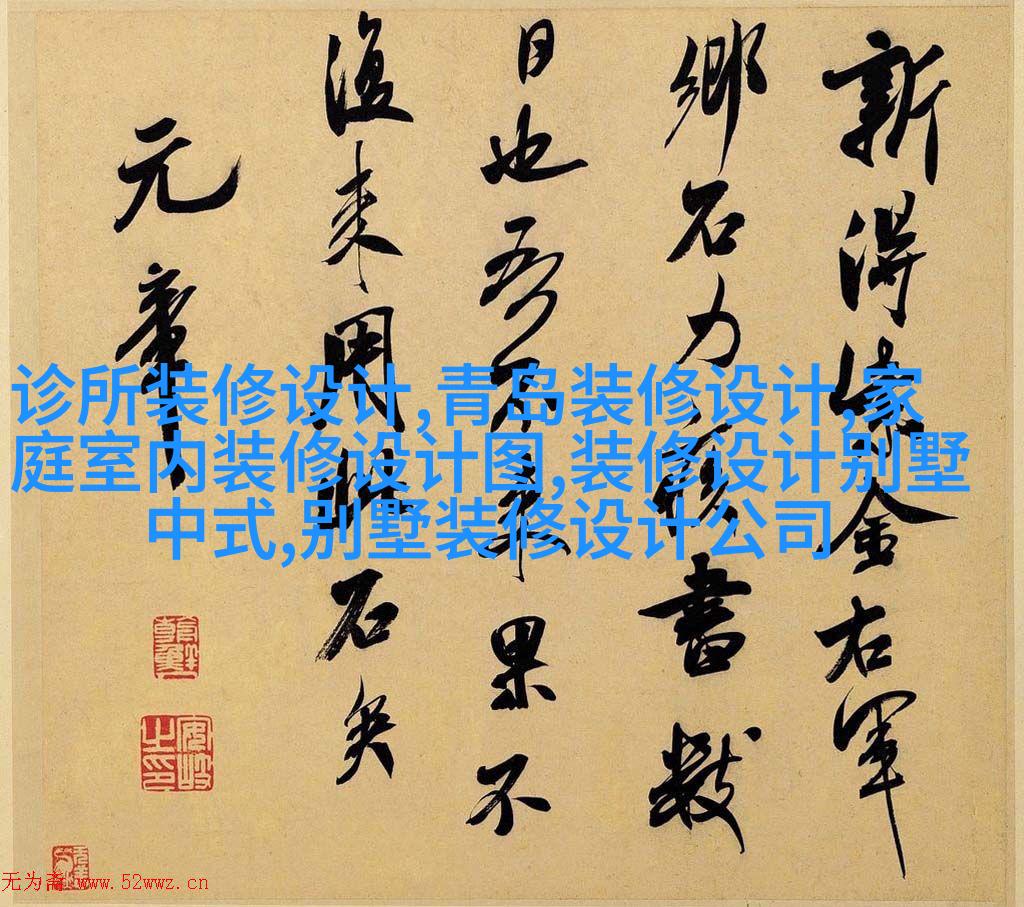 新得紫金右軍
鄉石力疾書數
日也吾不來果不
復來用此石矣
元章
诊所装修设计,青岛装修设计,家
庭室内装修设计图,装修设计别墅
中式,别墅装修设计公司
无为斋 www.52wwz.cn